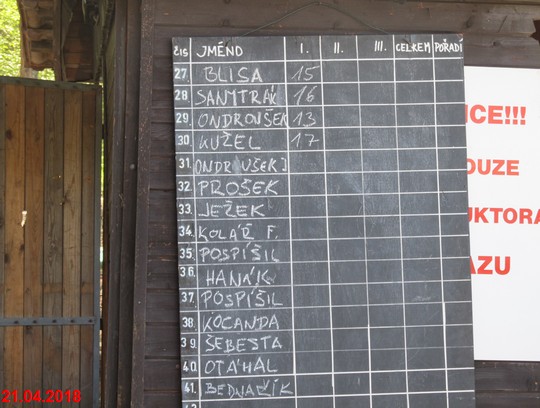 ČIS JMÉNO I. II. III. CELKEM POŘADÍ
27. BLISA 15
28. SAMTRÁK 16
29. ONDROUŠEK 13
30. KUŽEL 17
31. ONDROUŠEK J
32. PROŠEK
33. JEŽEK
34. KOLÁŘ F.
35. POSPÍŠIL
36. HANÁK
37. POSPÍŠIL
38. KOCANDA
39. ŠEBESTA
40. OTÁHAL
41. BEDNAŘÍK
CE!!!
OUZE
UKTORA
AZU
21.04.2018